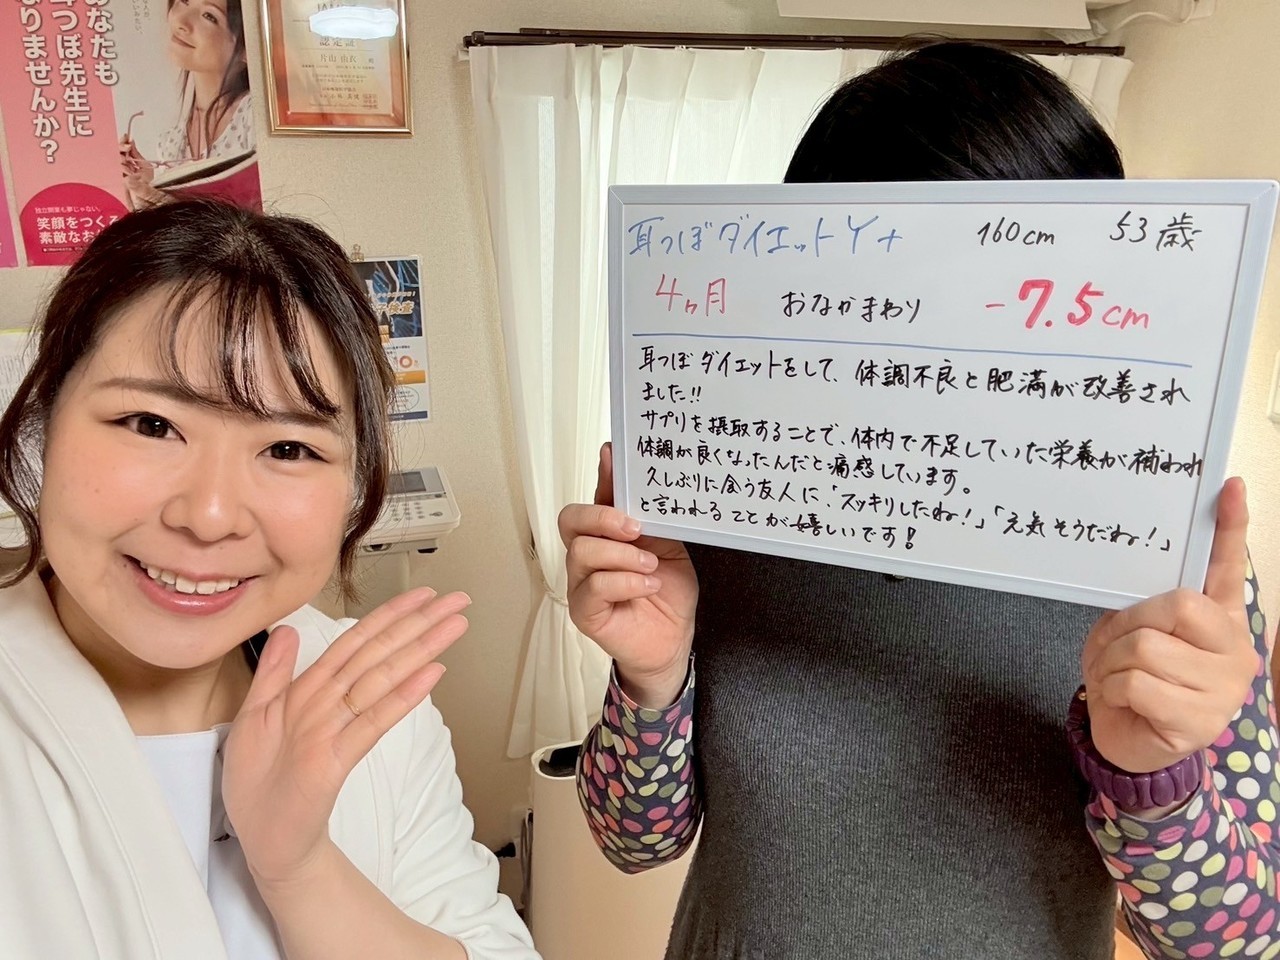 耳つぼダイエットY+ 160cm 53歳
4ヶ月 おなかまわり -7.5cm
耳つぼダイエットをして、体調不良と肥満が改善され
ました!!
サプリを摂取することで、体内で不足していた栄養が補われ
体調が良くなったんだと痛感しています。
久しぶりに会う友人に「スッキリしたね!」「元気そうだね!」
と言われることが嬉しいです!
あなたも
耳つぼ先生に
なりませんか?
独立開業も夢じゃない。
笑顔をつくる
素敵なお
認定証
片山 由衣 殿
検査